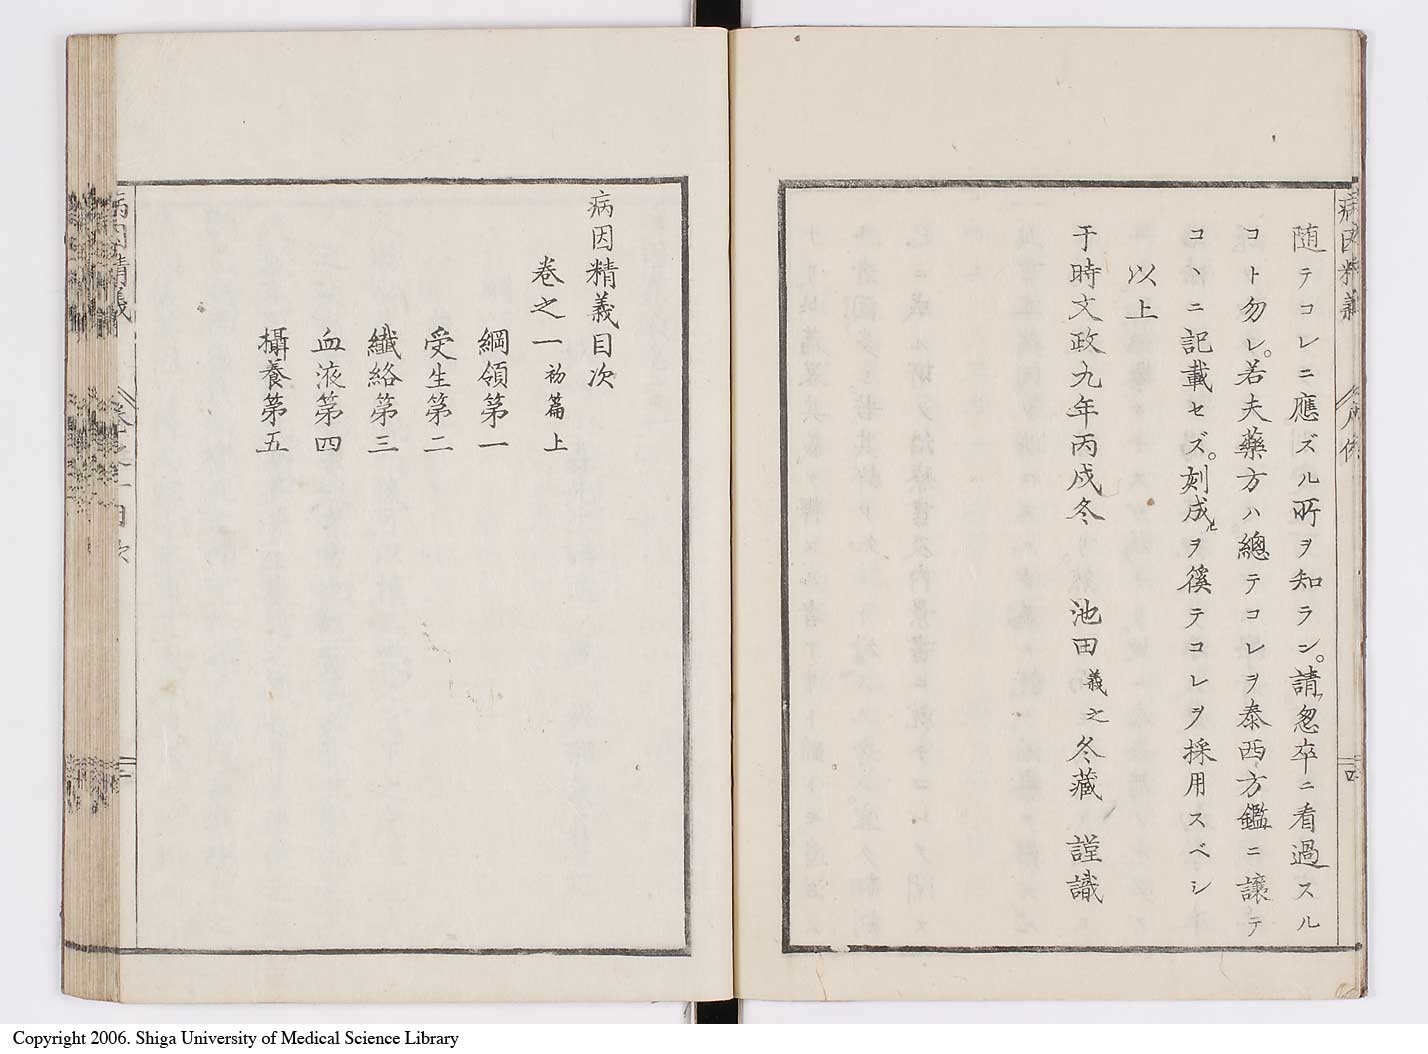 随テコレニ應ズル所ヲ知ラン。請フ怱卒ニ看過スル
コト勿レ。若夫藥方ハ總テコレヲ泰西方鑑ニ譲テ
コヽニ記載セズ。刻成ヲ徯テコレヲ採用スベシ
以上
于時文政九年丙戌冬 池田義之冬藏 謹識
病因精義目次
巻之一 初篇上
綱領第一
受生第二
纎絡第三
血液第四
攝養第五
病因精義 巻之一 目次
Copyright 2006. Shiga University of Medical Science Library